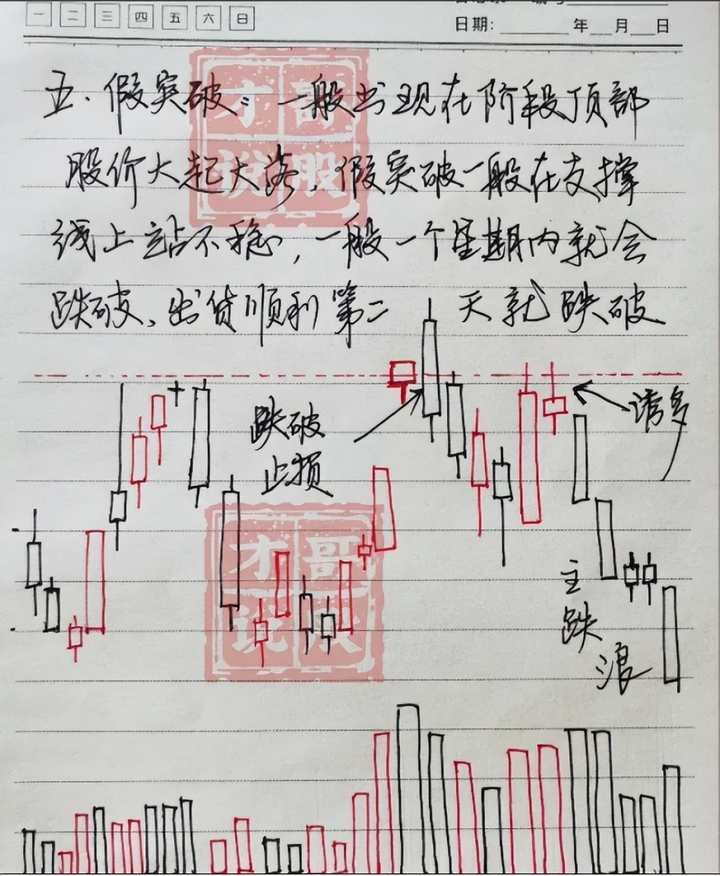 一 二 三 四 五 六 日
日期: 年 月 日
五、假突破：一般出现在阶段顶部
股价大起大落，假突破一般在支撑
线上站不稳，一般一个星期内就会
跌破、出货顺利第二 天就跌破
跌破
止损
诱多
主
跌
浪
才哥
说股
才哥
说股